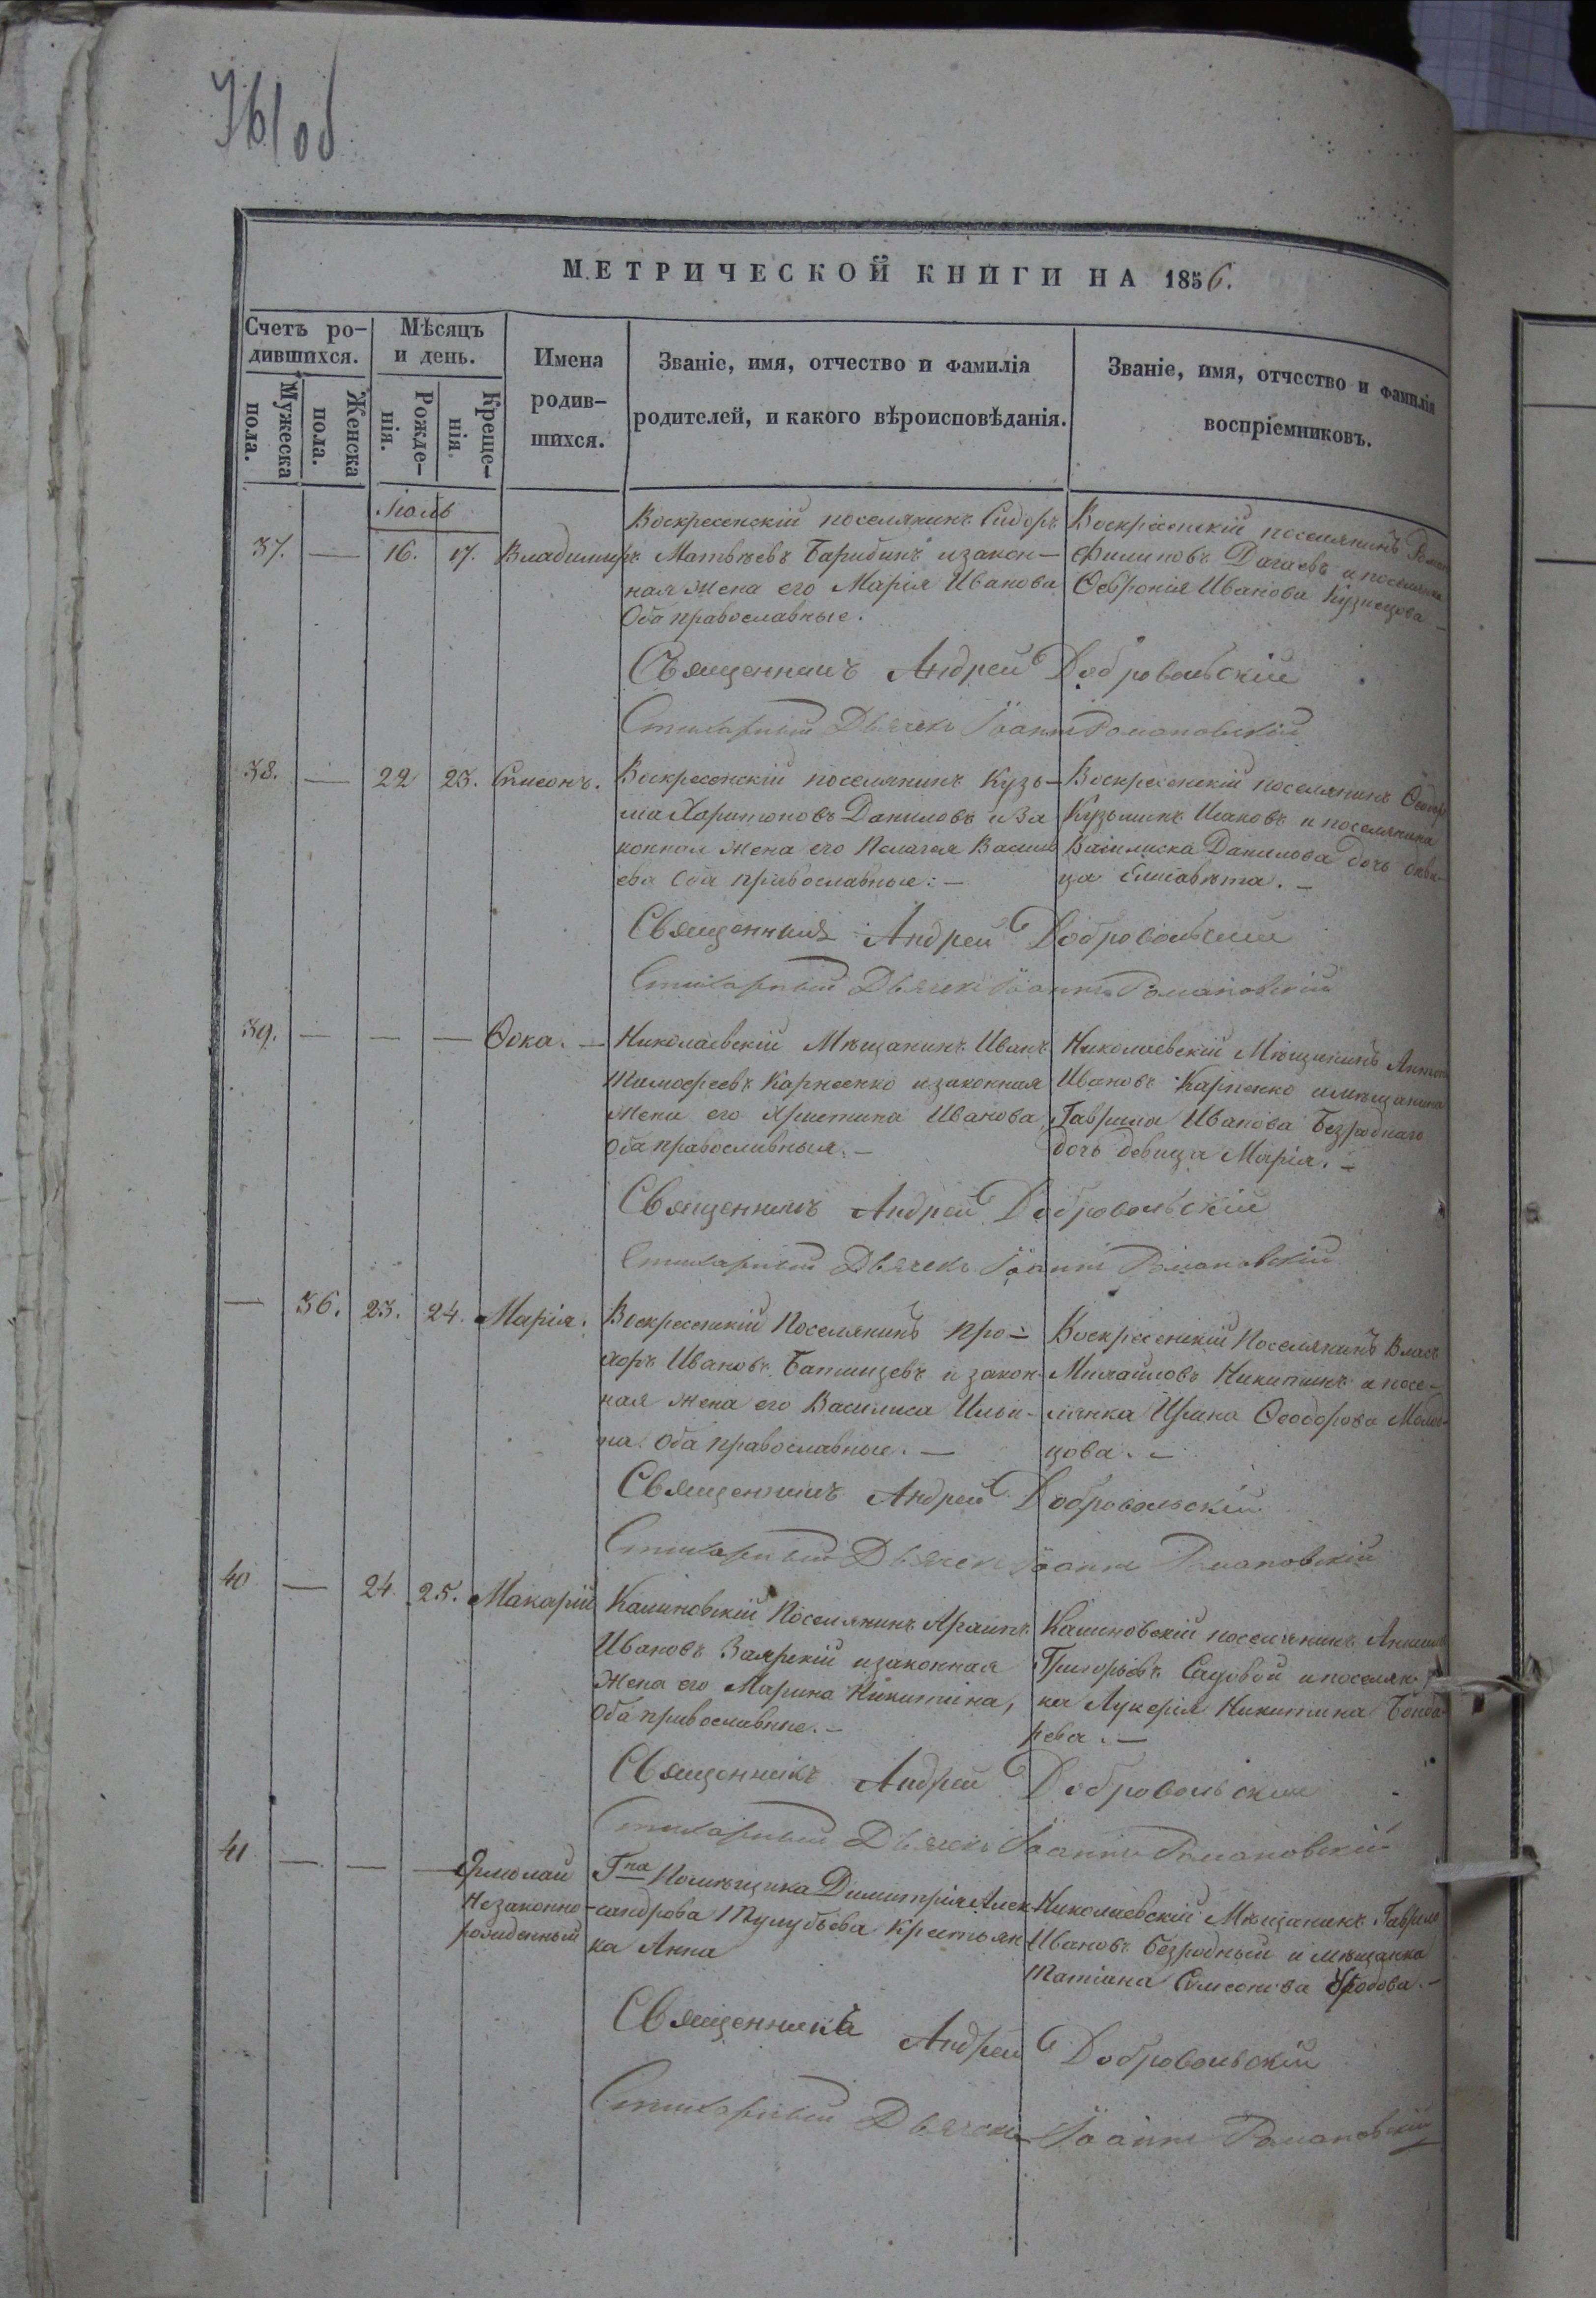 761 об
МЕТРИЧЕСКОЙ КНИГИ НА 1856.
Счетъ ро-
дившихся.
Мужеска
пола.
Женска
пола.
Мѣсяцъ
и день.
Рожде-
нія.
Креще-
нія.
Имена
родив-
шихся.
Званіе, имя, отчество и фамилія
родителей, и какого вѣроисповѣданія.
Званіе, имя, отчество и фамилія
воспріемниковъ.
Іюль
37. — 16. 17. Владимиръ
Воскресенскій поселянинъ Сидоръ
Матвѣевъ Барибинъ и закон-
ная жена его Марія Иванова
Оба православные.
Воскресенскій поселянинъ
Филиповъ Дагаевъ и поселянка
Ѳеѳронія Иванова Кузнецова
Священникъ Андрей Добровольскій
Стихарный Дьячекъ Іоаннъ Романовскій
38. — 22 23. Симеонъ.
Воскресенскій поселянинъ Кузь-
ма Харитоновъ Даниловъ и За
конная жена его Пелагея Василь
ева Оба православные: —
Воскресенскій поселянинъ Ѳеодоръ
Кузьминъ Исаковъ и поселянина
Василиска Данилова дочь дѣви-
ца Елисавета. —
Священникъ Андрей Добровольскій
Стихарный Дьячекъ Іоаннъ Романовскій
39. — — — Ѳока. —
Николаевскій Мѣщанинъ Иванъ
Тимофеевъ Карпенко и законная
жена его Христина Иванова
Оба православныя. —
Николаевскій Мѣщанинъ Антонъ
Ивановъ Карпенко и мѣщанина
Гаврила Иванова Безроднаго
дочь девица Марія. —
Священникъ Андрей Добровольскій
Стихарный Дьячекъ Іоаннъ Романовскій
— 36. 23. 24. Марія.
Воскресенскій Поселянинъ Про-
хоръ Ивановъ Батищевъ и закон-
ная жена его Василиса Ильи-
на. Оба православные. —
Воскресенскій Поселянинъ Власъ
Михайловъ Никитинъ и посе-
лянка Ирина Ѳеодорова Молод-
цова. —
Священникъ Андрей Добровольскій
Стихарный Дьячекъ Іоаннъ Романовскій
40 — 24. 25. Макарій
Калиновскій Поселянинъ
Ивановъ Заярскій и законная
Жена его Марина Никитина,
Оба православные. —
Калиновскій поселянинъ
Григорьевъ Садовой и поселян-
ка Лукерія Никитина Бонда-
рева. —
Священникъ Андрей Добровольскій
Стихарный Дьячекъ Іоаннъ Романовскій
41 — — — Ермолай
Незаконно-
рожденный
Гна Помѣщика Димитрія Алек
сандрова Тулубьева Крестьян
ка Анна
Николаевскій Мѣщанинъ Гаврило
Ивановъ безродный и мѣщанка
Татіана Симеонова
Священникъ Андрей Добровольскій
Стихарный Дьячекъ Іоаннъ Романовскій